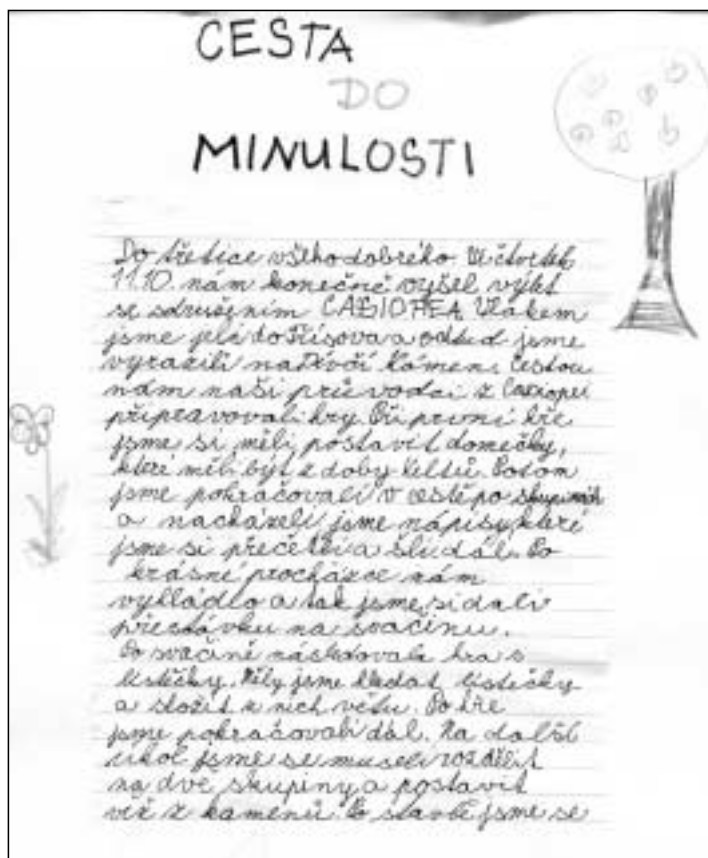 CESTA
DO
MINULOSTI
Do třetice všeho dobrého. Ve čtvrtek
11.10. nám konečně vyšel výlet
se sdružením CASIOPEA Vlakem
jsme jeli do Třísova a odtud jsme
vyrazili na Dívčí Kámen. Cestou
nám naši průvodci z Casiopei
připravovali hry. Při první hře
jsme si měli postavit domečky,
které měli být z doby Keltů. Potom
jsme pokračovali v cestě po skupinách
a nacházeli jsme nápisy, které
jsme si přečetli a šli dál. Po
krásné procházce nám
vyhládlo a tak jsme si dali
přestávku na svačinu.
Po svačině následovala hra s
lístečky. Měly jsme hledat lístečky
a složit z nich větu. Po hře
jsme pokračovali dál. Na další
úkol jsme se museli rozdělit
na dvě skupiny a postavit
věž z kamenů. Po stavbě jsme se